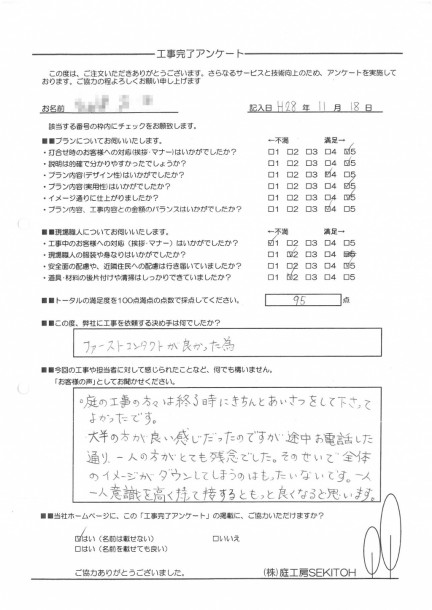 工事完了アンケート
この度は、ご注文いただきありがとうございます。さらなるサービスと技術向上のため、アンケートを実施して
おります、ご協力の程よろしくお願い申し上げます
お名前
記入日 H28 年 11 月 18 日
該当する番号の枠内にチェックをお願致します。
■■プランについてお伺いいたします。 ←不満 満足→
・打合せ時のお客様への対応(挨拶・マナー)はいかがでしたか? □1 □2 □3 □4 ☑5
・説明は的確で分かりやすかったでしょうか? □1 □2 □3 □4 ☑5
・プラン内容(デザイン性)はいかがでしたか? □1 □2 □3 ☑4 □5
・プラン内容(実用性)はいかがでしたか? □1 □2 □3 □4 ☑5
・イメージ通りに仕上がりましたか? □1 □2 □3 □4 ☑5
・プラン内容、工事内容との金額のバランスはいかがでしたか? □1 □2 □3 ☑4 □5
■■現場職人についてお伺いいたします。 ←不満 満足→
・工事中のお客様への対応(挨拶・マナー)はいかがでしたか? ☑1 □2 □3 □4 □5
・現場職人の服装や身なりはいかがでしたか? □1 ☑2 □3 □4 5
・安全面の配慮や、近隣住民への配慮は行き届いていましたか? □1 □2 □3 □4 ☑5
・道具・材料の後片付けや清掃はしっかりできていましたか? □1 ☑2 □3 □4 □5
■■トータルの満足度を100点満点の点数で採点してください。 95 点
■■この度、弊社に工事を依頼する決め手は何でしたか?
ファーストコンタクトが良かった為
■■今回の工事や担当者に対して感じられたことなど、何でも構いません。
「お客様の声」としてお聞かせください。
○庭の工事の方々は終る時にきちんとあいさつをして下さって
よかったです。
大半の方が良い感じだったのですが途中お電話した
通り、一人の方がとても残念でした。そのせいで全体
のイメージがダウンしてしまうのはもったいないです。一人
一人意識を高く持って接するともっと良くなると思います。
■■当社ホームページに、この「工事完了アンケート」の掲載に、ご協力いただけますか?
☑はい (名前は載せない) □いいえ
□はい (名前を載せても良い)
ご協力ありがとうございました。
(株)庭工房SEKITOH